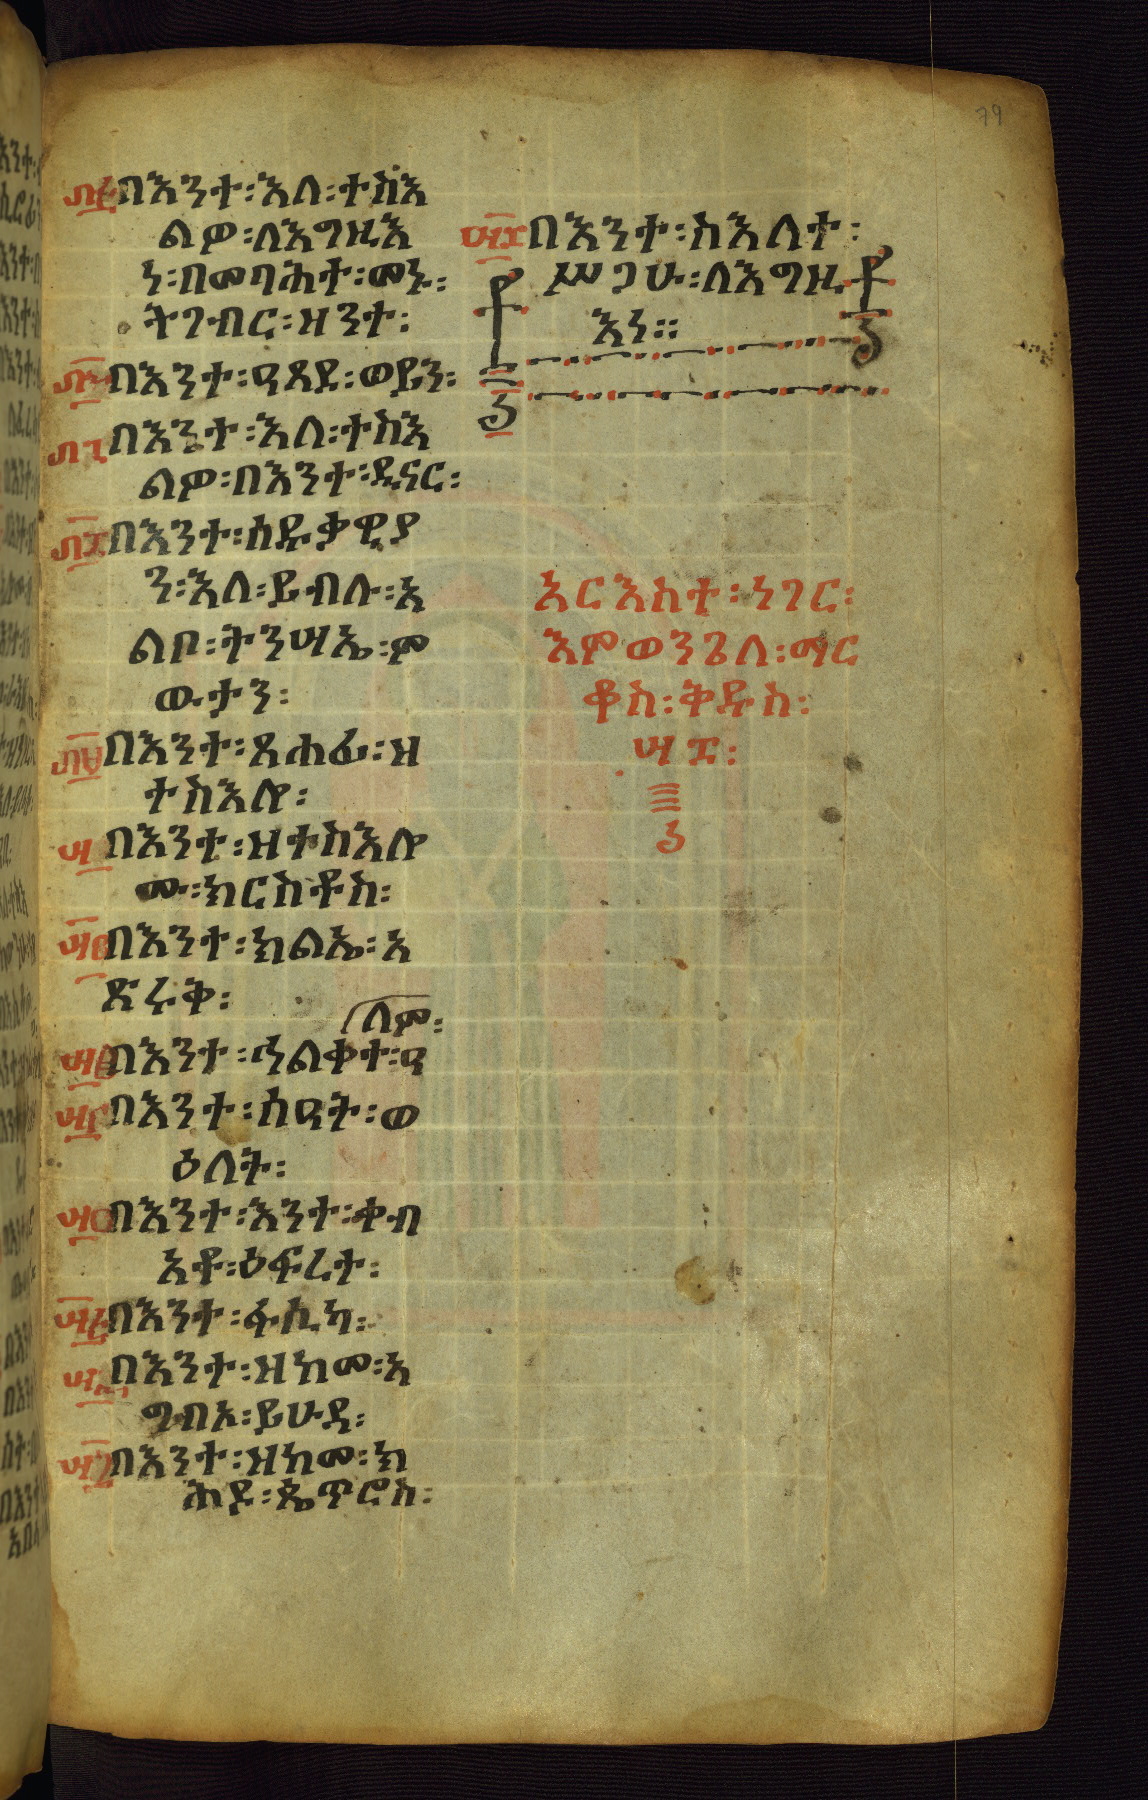 79
፴፭ በእንተ፡እለ፡ተስእ
ልዎ፡ለእግዚእ
ነ፡በመባሕተ፡መኑ፡
ትገብር፡ዝንተ፡
፴፮ በእንተ፡ዓጸደ፡ወይን፡
፴፯ በእንተ፡እለ፡ተስእ
ልዎ፡በእንተ፡ዲናር፡
፴፰ በእንተ፡ሰዱቃዊያ
ን፡እለ፡ይብሉ፡አ
ልቦ፡ትንሣኤ፡ም
ውታን፡
፴፱ በእንተ፡ጸሐፊ፡ዘ
ተስእሎ፡
፵ በእንተ፡ዘተስእሎ
ሙ፡ክርስቶስ፡
፵፩ በእንተ፡ክልኤ፡አ
ጽሩቅ፡
ለም፡
፵፪ በእንተ፡ኅልቀተ፡ዓ
፵፫ በእንተ፡ሰዓት፡ወ
ዕለት፡
፵፬ በእንተ፡እንተ፡ቀብ
አቶ፡ዕፍረተ፡
፵፭ በእንተ፡ፋሲካ፡
፵፮ በእንተ፡ዘከመ፡አ
ግብኦ፡ይሁዳ፡
፵፯ በእንተ፡ዘከመ፡ክ
ሕደ፡ጴጥሮስ፡
፵፰ በእንተ፡ስእለተ፡
ሥጋሁ፡ለእግዚ
እነ፡፡
አርእስተ፡ነገር፡
እምወንጌለ፡ማር
ቆስ፡ቅዱስ፡
፵፰፡